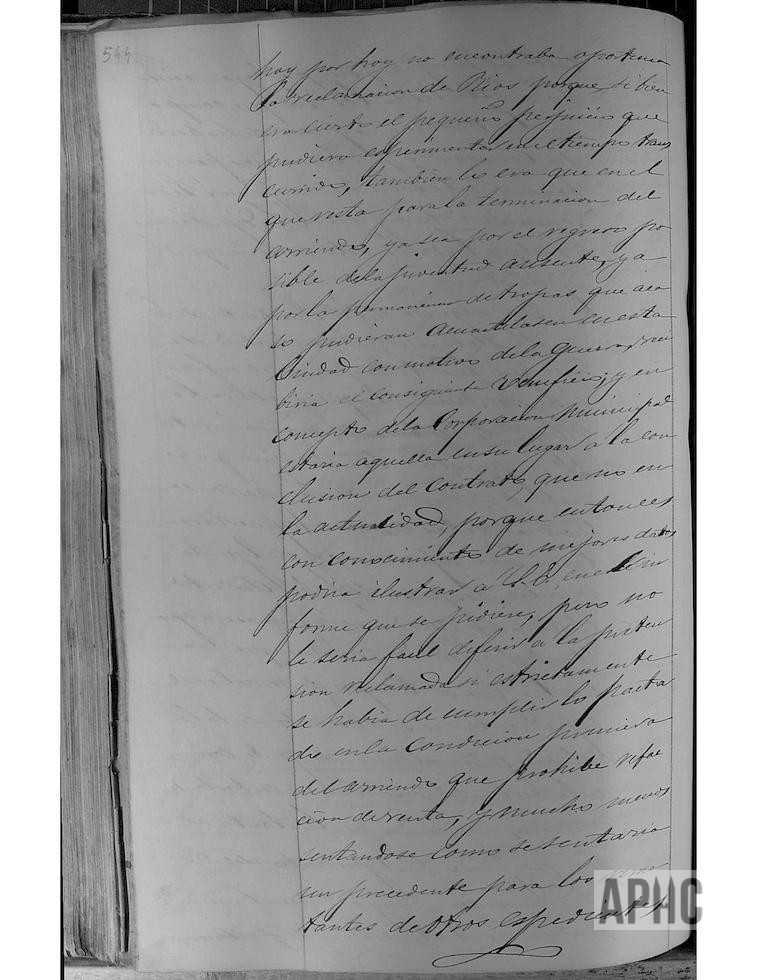 544
hoy por hoy no encontraba oportuna
la reclamacion de Rios porque si bien
era cierto el pequeño perjuicio que
pudiera esperimentar en el tiempo trans
currido, tambien lo era que en el
que resta para la terminacion del
arriendo, ya sea por el regreso po
sible de la juventud ausente, ya
por la permanencia de tropas que aca
so pudieran acuartelasen en esta
Ciudad con motivo de la Guerra, reci
biria el consiguiente veneficio; y en
concepto de la Corporacion Municipal
estaria aquella en su lugar a la con
clusion del contrato, que no en
la actualidad, porque entonces
con conocimiento de mejores datos
podria ilustrar a S.E. en el in
forme que se pidiere, pero no
le seria facil diferir a la preten
sion reclamada si estrictamente
se habia de cumplir lo pacta
do en la Condicion primera
del arriendo que prohibe refac
cion de renta, y mucho menos
sentandose como se sentaria
un precedente para los rema
tantes de otros espedientes
APHC